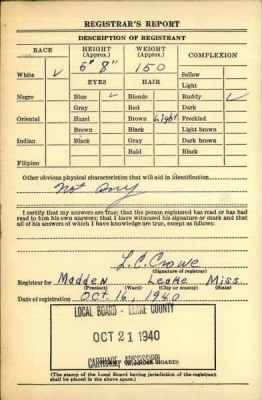 REGISTRAR'S REPORT
DESCRIPTION OF REGISTRANT
RACE HEIGHT (Approx.) WEIGHT (Approx.) COMPLEXION
White ✓ 5' 8" 150 Sallow
EYES HAIR Light
Negro Blue ✓ Blonde Ruddy ✓
Gray Red Dark
Oriental Hazel Brown Light Freckled
Brown Black Light brown
Indian Black Gray Dark brown
Bald Black
Filipino
Other obvious physical characteristics that will aid in identification
Not Any
I certify that my answers are true; that the person registered has read or has had
read to him his own answers; that I have witnessed his signature or mark and that
all of his answers of which I have knowledge are true, except as follows:
L. C. Crowe
(Signature of registrar)
Registrar for Madden Leake Miss.
(Precinct) (Ward) (City or county) (State)
Date of registration Oct. 16, 1940
LOCAL BOARD - LEAKE COUNTY
OCT 21 1940
CARTHAGE, MISSISSIPPI
(STAMP OF LOCAL BOARD)
(The stamp of the Local Board having jurisdiction of the registrant
shall be placed in the above space.)